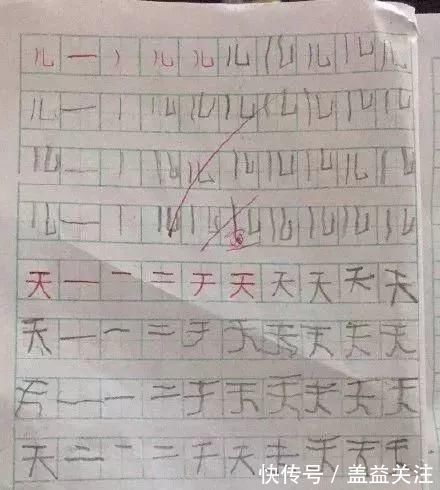 儿 一 丿 儿 儿 儿 儿 儿 儿 儿
儿 一 丨 儿 儿 儿 儿 儿 儿 儿
儿 一 丨 儿 儿 儿 儿 儿 儿 儿
儿 一 丨 儿 儿 儿 儿 儿 儿 儿
天 一 一 二 于 天 天 天 天 天
天 一 一 二 于 天 天 天 天 天
天 一 一 二 于 天 天 天 天 天
天 二 一 二 于 天 天 天 天
快传号/盖益关注